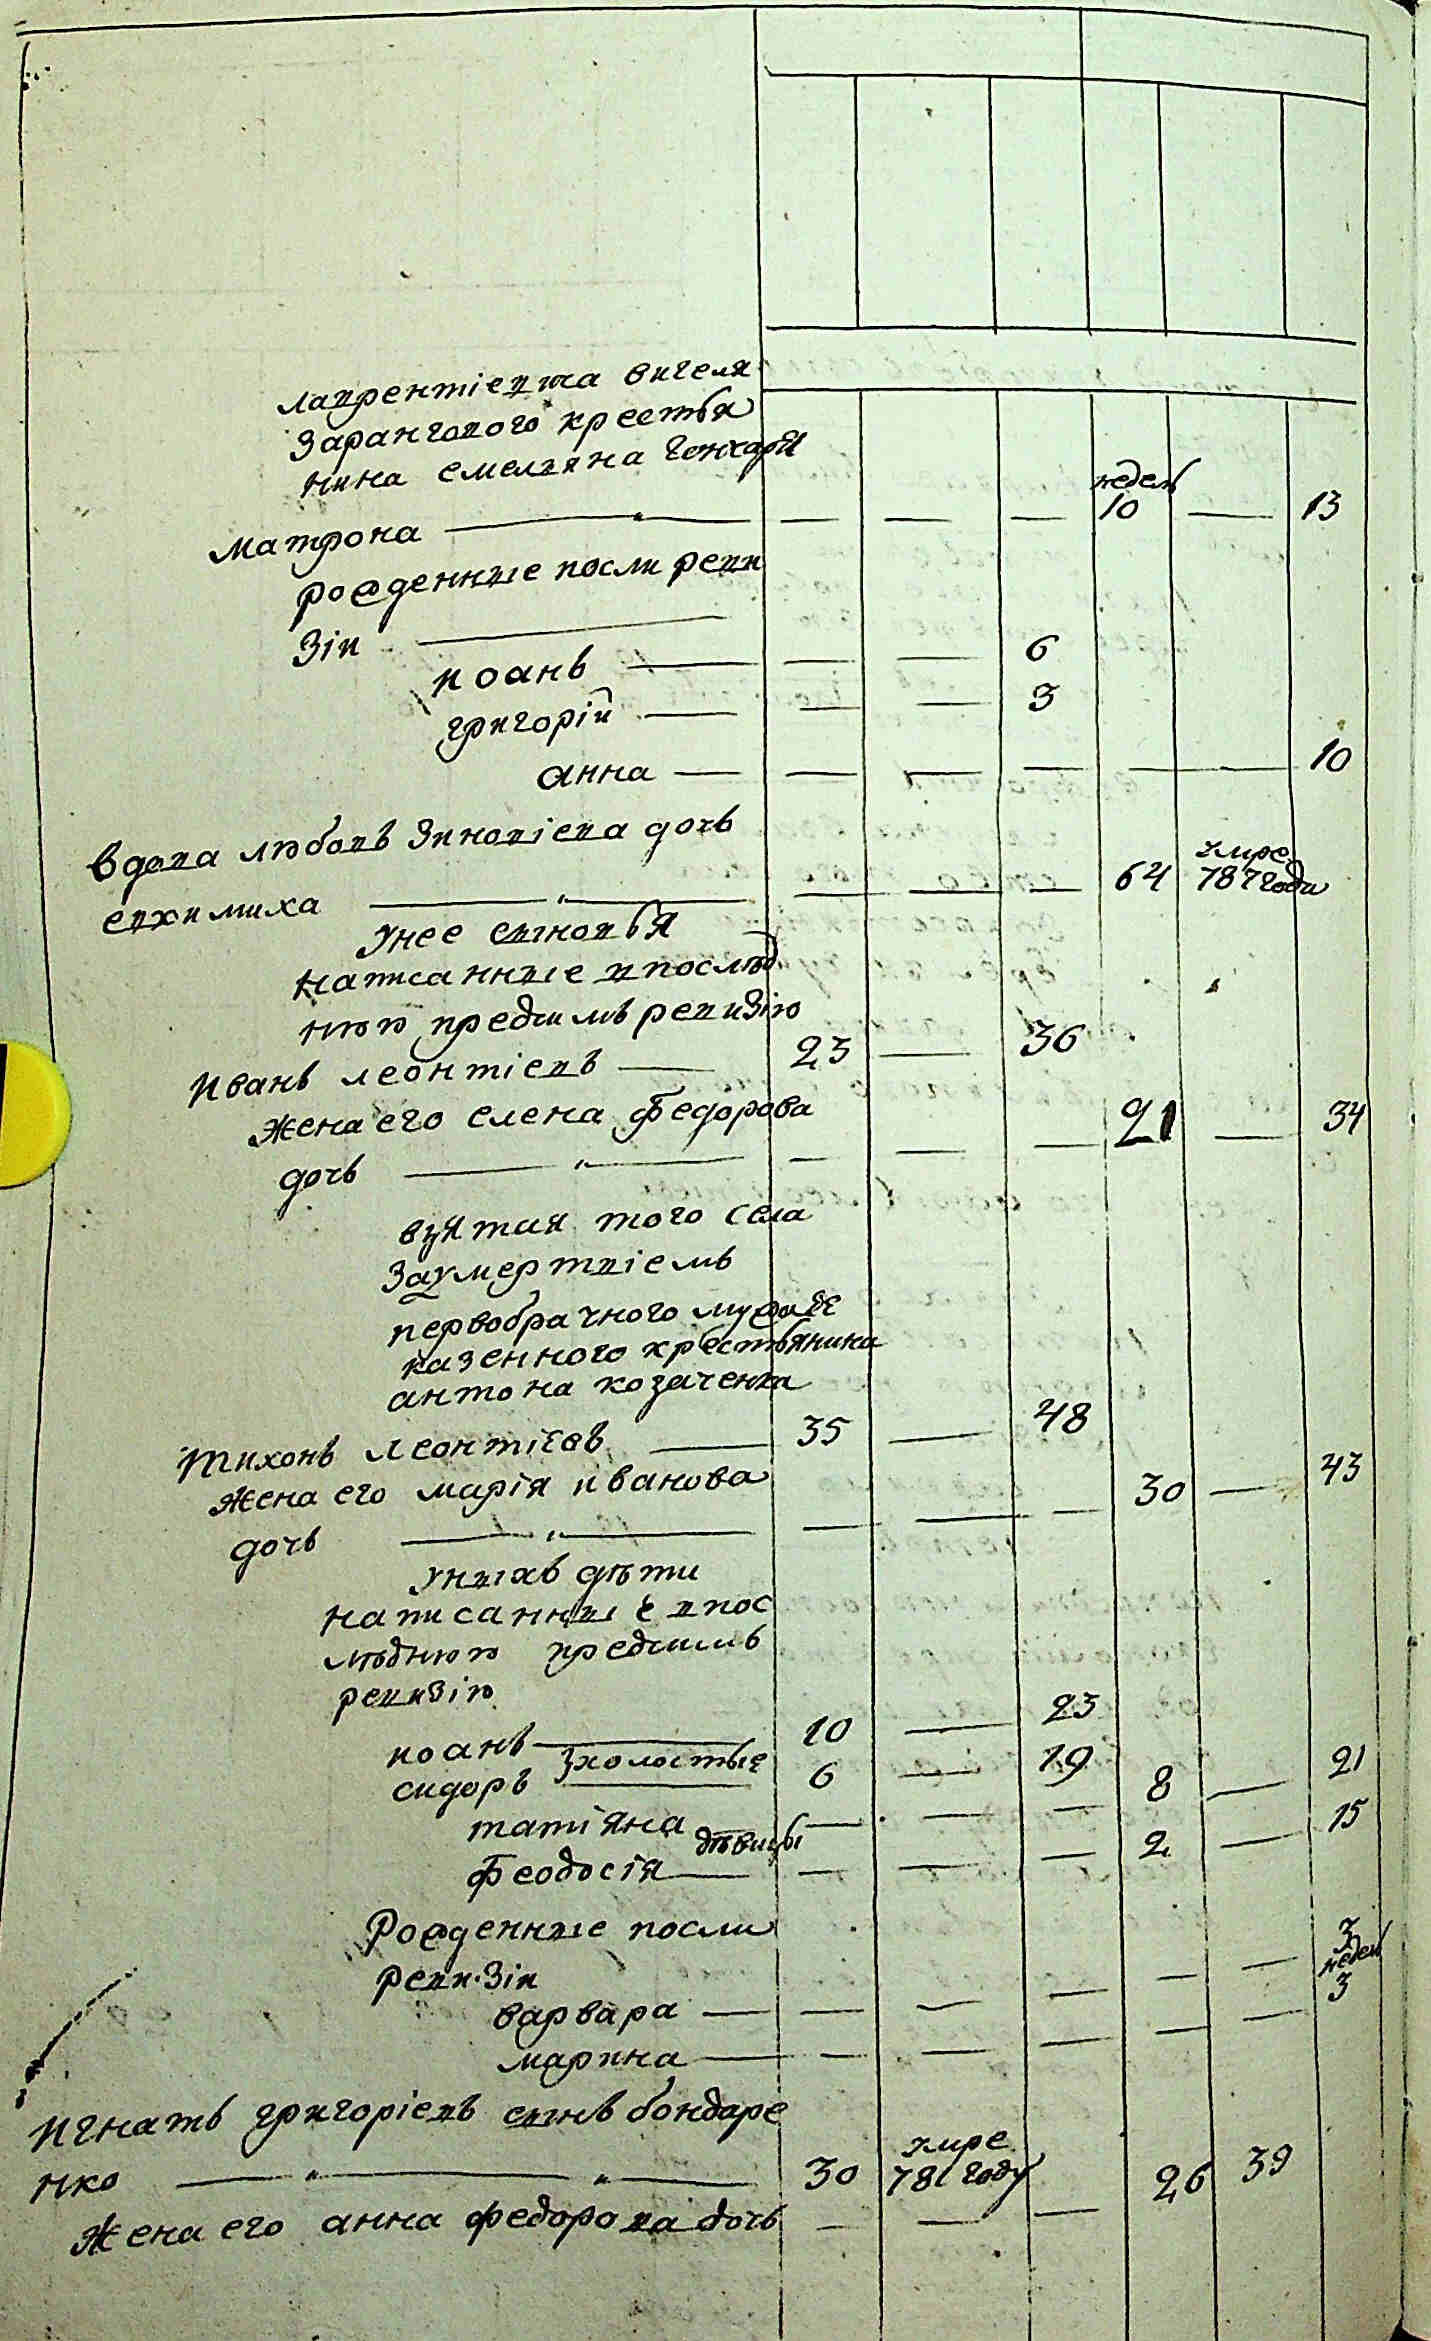 лаврентіевича вигеля
зарангового крестья
нина емельяна Гончаря
Матрона — недель 10 — 13
рожденные посли реви
зіи
иоанъ — 6
григорій — 3
анна — 10
вдова любовъ Зиновіева дочь
евхимиха — 64 умре 787 года
унее сыновья
написанные впослѣд
нюю предсимъ ревизію
иванъ леонтіевъ — 23 — 36
жена его елена Федорова
дочь — 21 — 34
взятая того села
заумертвіемъ
первобрачного мужа ее
казенного крестьянина
антона козаченка
тихонъ леонтіевъ — 35 — 48
жена его марія иванова
дочь — 30 — 43
унихъ дѣти
написанные впос
лѣднюю предсимъ
ревизію
иоанъ — 10 — 23
сидоръ холостые 6 — 19
татіяна — 8 — 21
Феодосія девицы — 2 — 15
Рожденные посли
ревизіи
варвара — 3
марина — недель 3
игнатъ григоріевъ сынъ бондаре
нко — 30 умре 781 году
жена его анна федорова дочь — 26 39